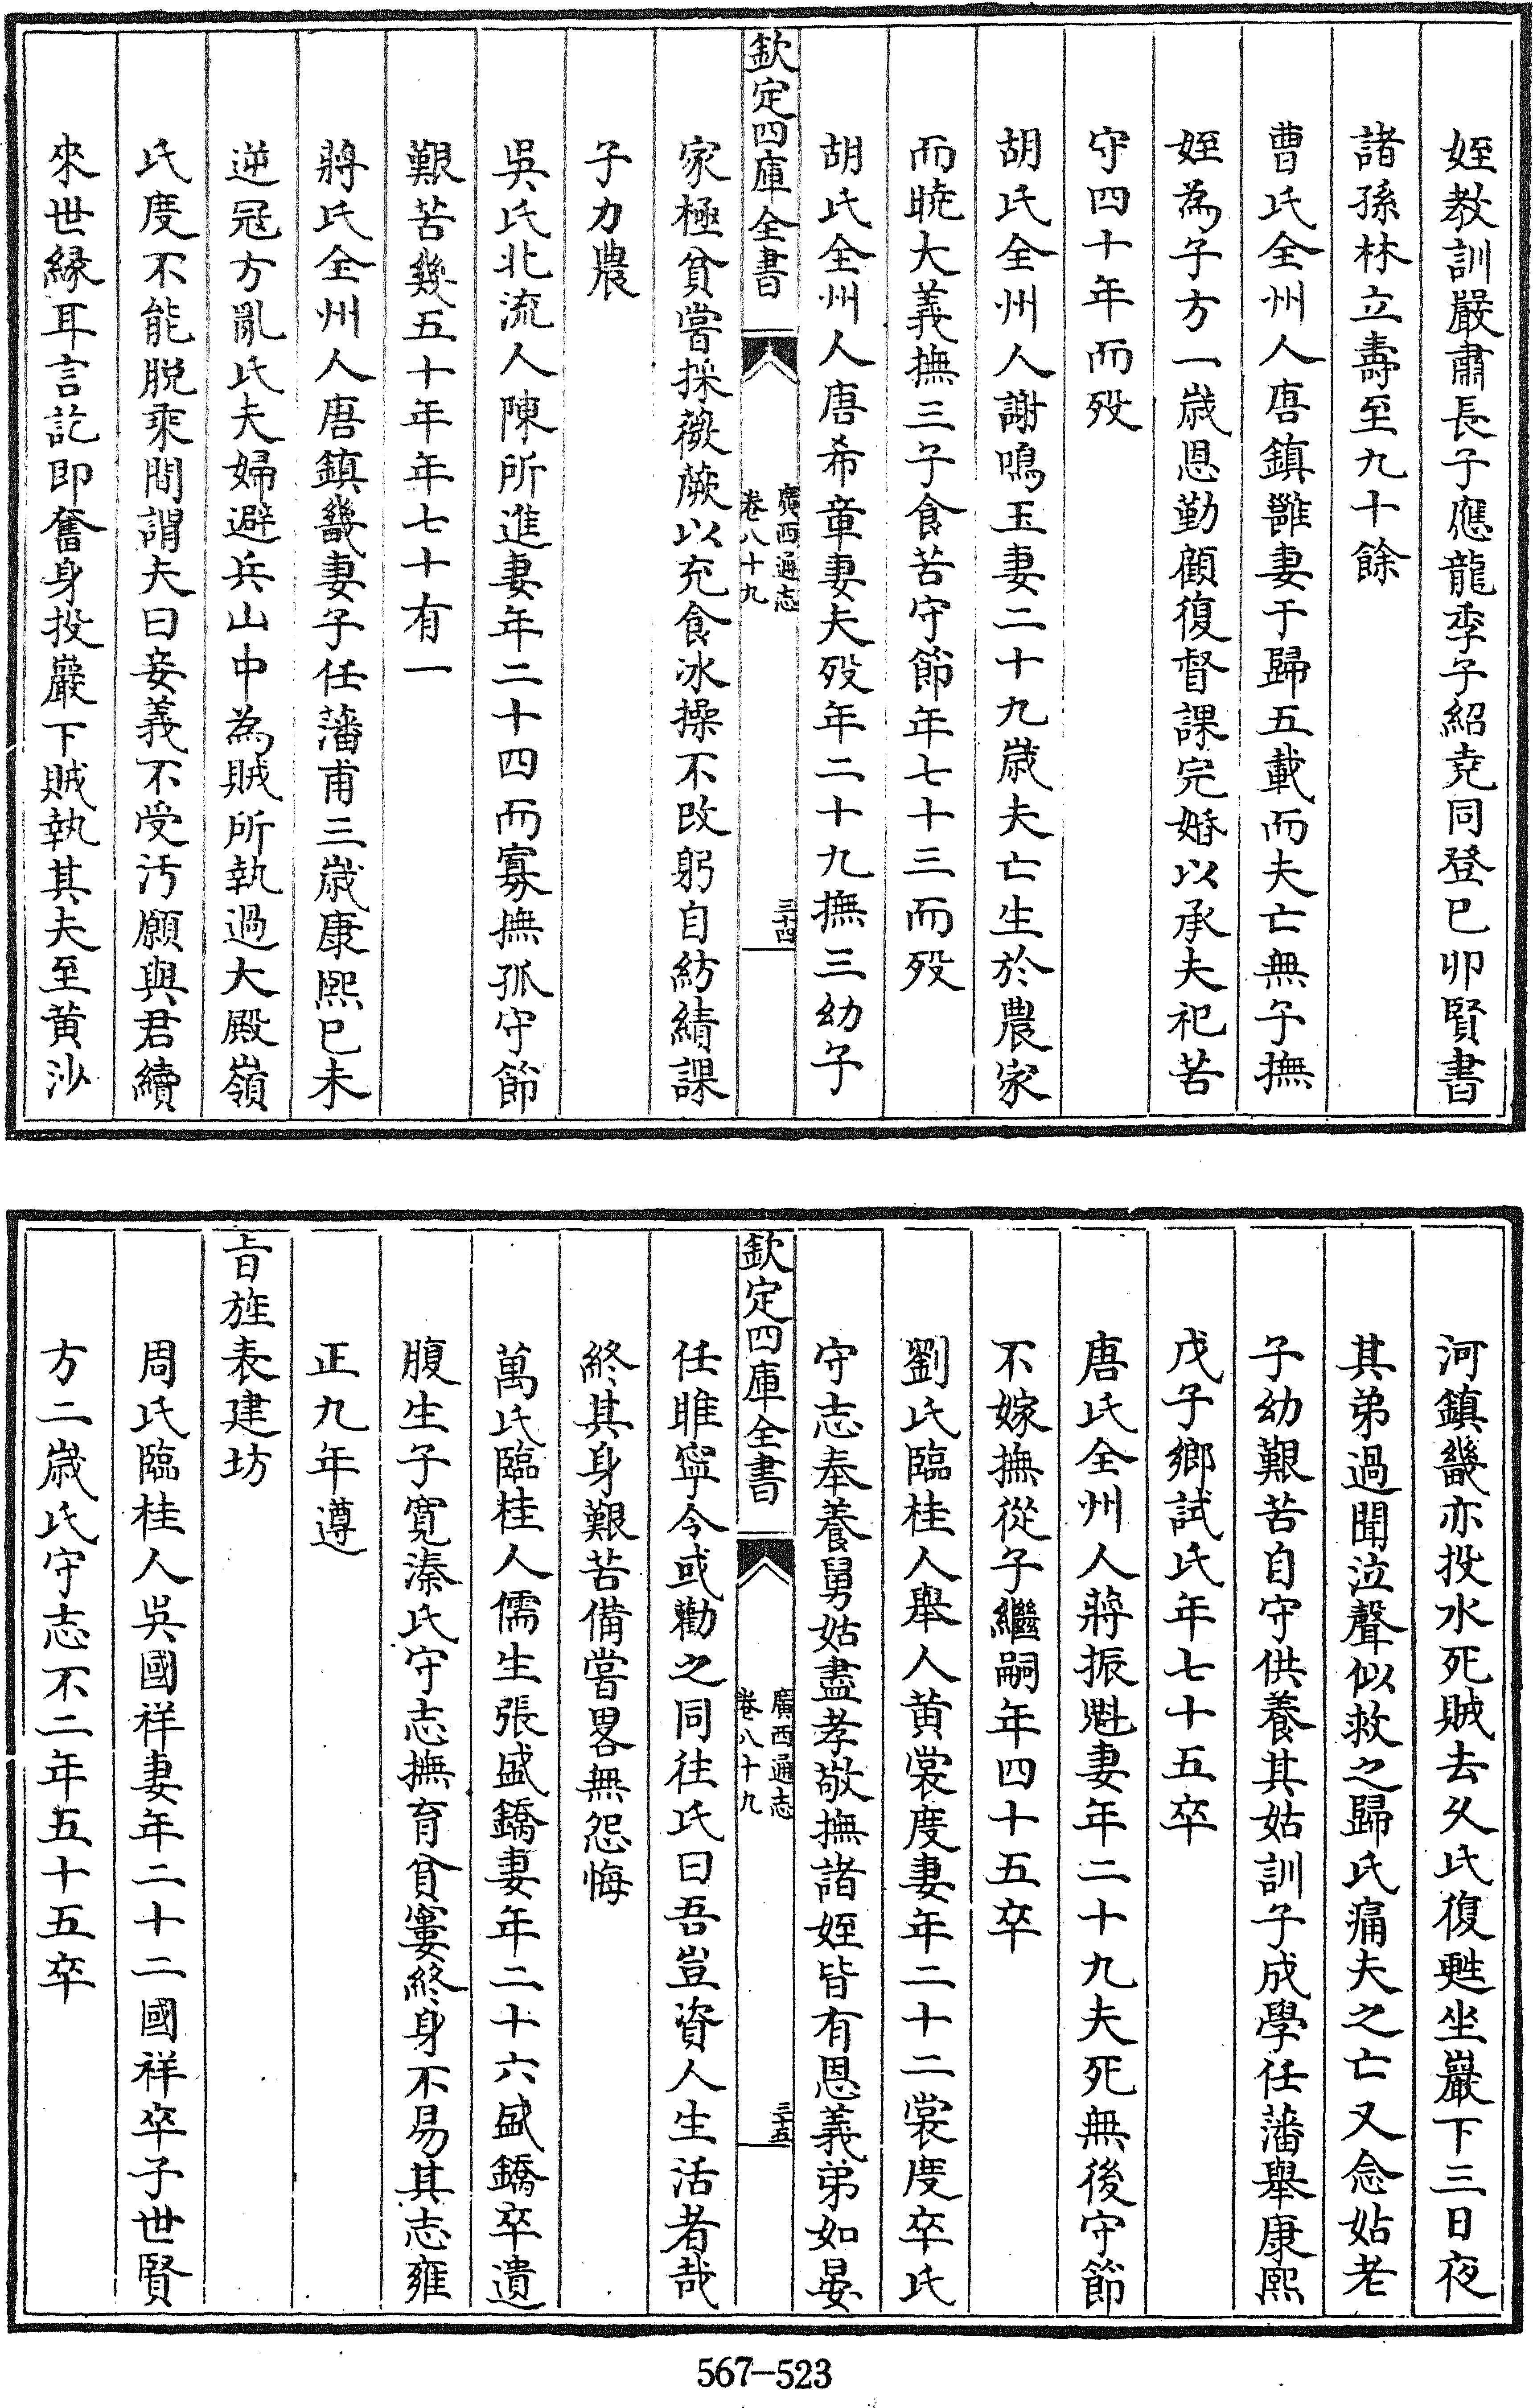 姪教訓嚴肅長子應龍季子紹堯同登巳卯賢書
諸孫林立壽至九十餘
曹氏全州人唐鎮雝妻于歸五載而夫亡無子撫
姪為子方一歳恩勤顧復督課完婚以承夫祀苦
守四十年而歿
胡氏全州人謝鳴玉妻二十九歳夫亡生於農家
而曉大義撫三子食苦守節年七十三而歿
胡氏全州人唐希章妻夫歿年二十九撫三幼子
欽定四庫全書
廣西通志
卷八十九
三十四
家極貧嘗採薇蕨以充食冰操不改躬自紡績課
子力農
吳氏北流人陳所進妻年二十四而寡撫孤守節
艱苦幾五十年年七十有一
蔣氏全州人唐鎮畿妻子任藩甫三歳康熙巳未
逆冦方亂氏夫婦避兵山中為賊所執過大殿嶺
氏度不能脱乘間謂夫曰妾義不受汚願與君續
來世緣耳言訖即奮身投巖下賊執其夫至黄沙
河鎮畿亦投水死賊去乆氏復甦坐巖下三日夜
其弟過聞泣聲似救之歸氏痛夫之亡又念姑老
子幼艱苦自守供養其姑訓子成學任藩舉康熙
戊子鄉試氏年七十五卒
唐氏全州人蔣振魁妻年二十九夫死無後守節
不嫁撫從子繼嗣年四十五卒
劉氏臨桂人舉人黄裳度妻年二十二裳度卒氏
守志奉養舅姑盡孝敬撫諸姪皆有恩義弟如晏
欽定四庫全書
廣西通志
卷八十九
三十五
任睢寧令或勸之同往氏曰吾豈資人生活者哉
終其身艱苦備嘗畧無怨悔
萬氏臨桂人儒生張盛鐈妻年二十六盛鐈卒遺
腹生子寛溱氏守志撫育貧窶終身不易其志雍
正九年遵
旨旌表建坊
周氏臨桂人吳國祥妻年二十二國祥卒子世賢
方二歳氏守志不二年五十五卒
567-523